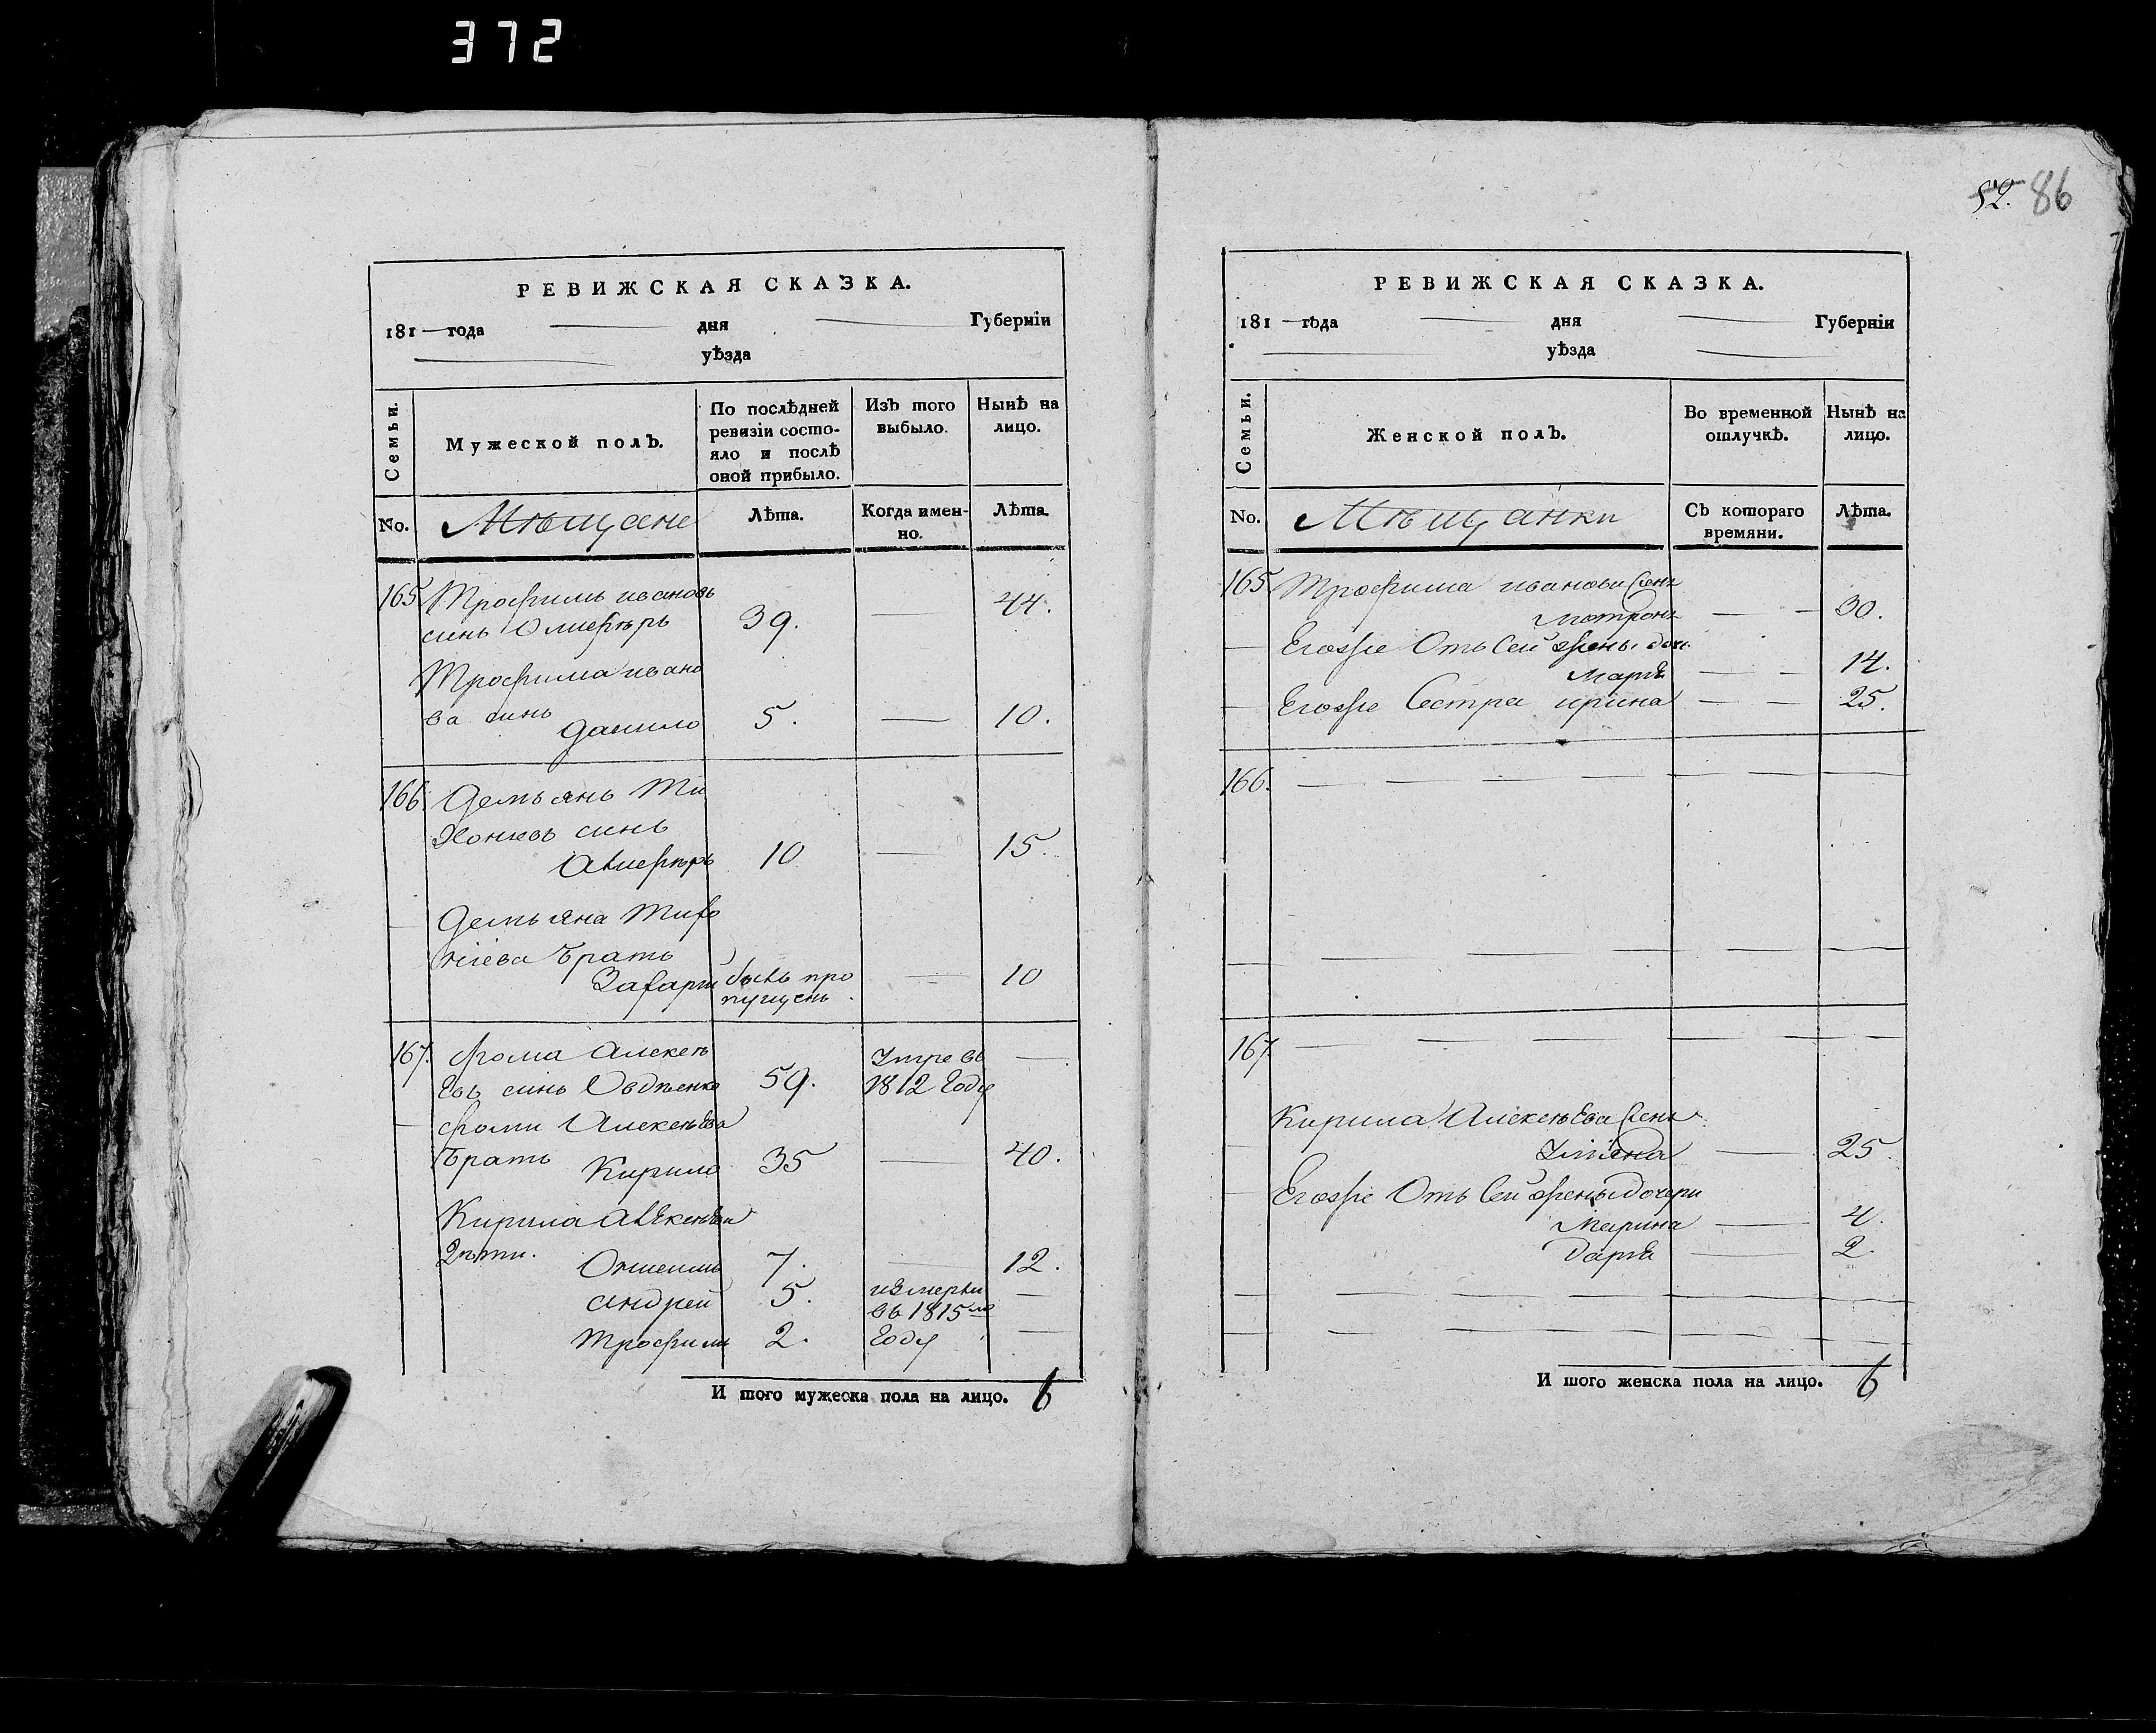 372
52. 86
РЕВИЖСКАЯ СКАЗКА.
181 — года — дня — Губернїи
— уѣзда
Семьи.
Мужеской полъ.
По послѣдней
ревизїи состо-
яло и послѣ
оной прибыло.
Изъ того
выбыло.
Нынѣ на
лицо.
No.
Мѣщане
Лѣта.
Когда имен-
но.
Лѣта.
165 Трофимъ ивановъ
синъ 39. — 44.
Трофима ивано
ва синъ
Данило 5. — 10.
166. Демьянъ Ти
хонѣевъ синъ
10 — 15.
— Демьяна Тихо
нѣева братъ
Захарїй бывъ про
пущенъ. — 10
167. Фома Алексѣ
евъ синъ Овдѣенко 59. Умре въ
1812 Году —
— Фоми Алексѣева
братъ Кирило 35 — 40.
Кирила Алексѣева
Дѣти.
7. — 12.
Андрей 5. измерьли
въ 1815мъ —
Трофимъ 2. Году —
И того мужеска пола на лицо. 6
РЕВИЖСКАЯ СКАЗКА.
181 — года — дня — Губернїи
— уѣзда —
Семьи.
Женской полъ.
Во временной
отлучкѣ.
Нынѣ на
лицо.
No.
Мѣщанки
Съ котораго
времяни.
Лѣта.
165 Трофима иванова жена
Мотрона — — 30.
— Егожже Отъ Сей жены дочь
Марїя — — 14.
— Егожже Сестра ирина — — 25.
166. — — — — — — —
— — — — — —
167. — — — — — —
Кирила Алексѣева жена
— Улїяна — 25.
— Егожже Отъ Сей жены дочери
Марина — 4.
Дарїя — 2.
И того женска пола на лицо. 6